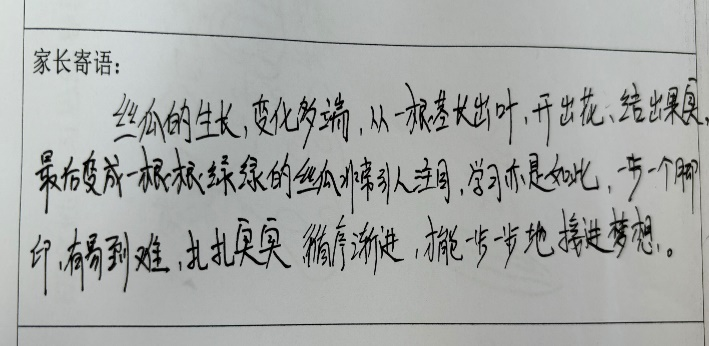 家长寄语：
丝瓜的生长，变化多端，从一根茎长出叶，开出花、结出果实，
最后变成一根根绿绿的丝瓜非常引人注目，学习亦是如此，一步一个脚
印，有易到难，扎扎实实 循序渐进，才能一步一步地接进梦想。